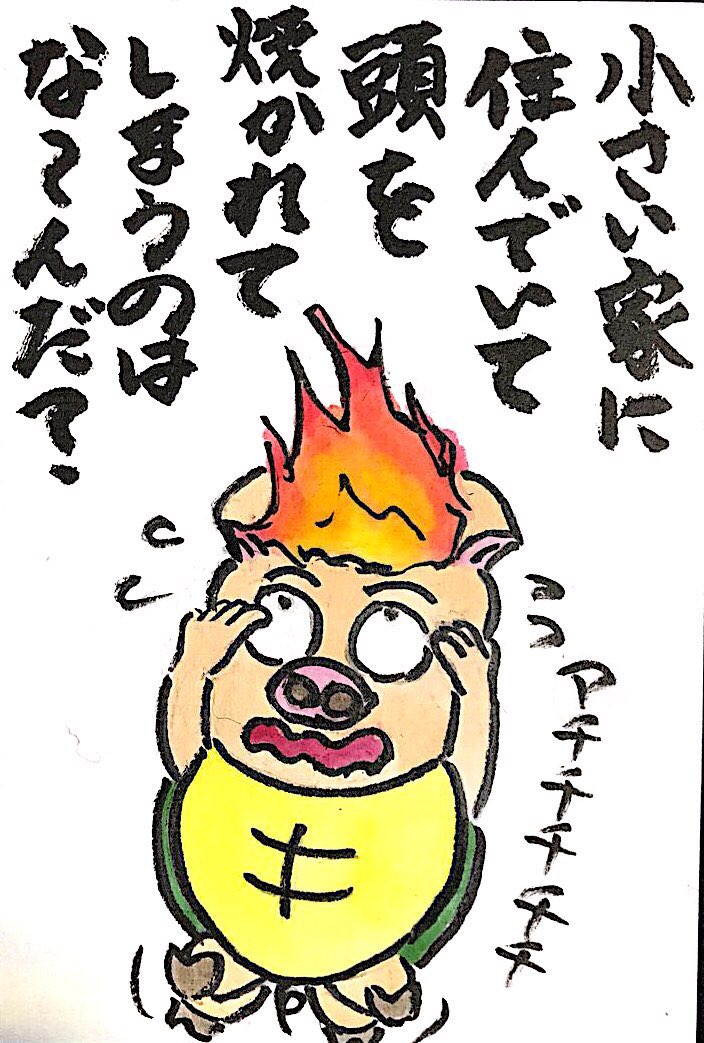 小さい家に
住んでいて
頭を
焼かれて
しまうのは
な〜んだ？
アチチチチチ